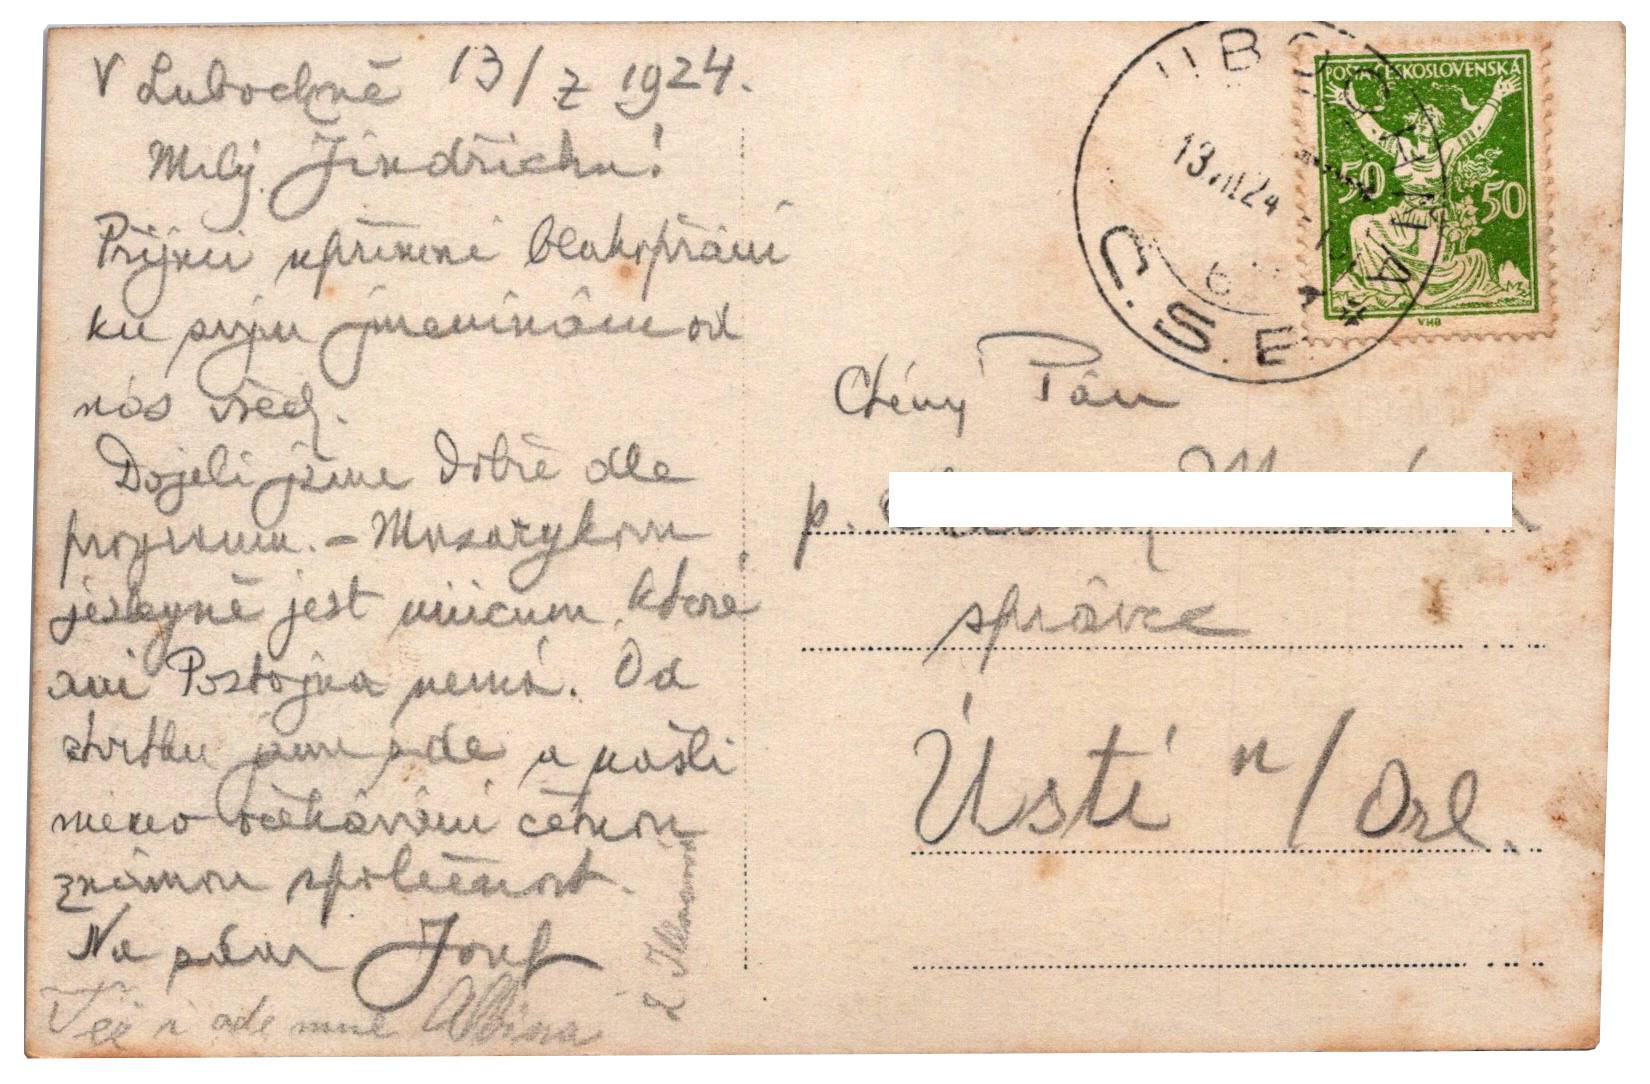 V Lubochně 13/7 1924.
Milý Jindřichu!
Přijmi upřímné blahopřání
ku svým jmeninám od
nás všech.
Dojeli jsme dobře dle
programu. – Masarykova
jeskyně jest unicum, které
ani Postojna nemá. Od
čtvrtku jsme zde a našli
mimo očekávání četnou
známou společnost.
Na zdar Josef
Též i ode mne Albina
ĽUBOCHŇA
13.VII.24
Č.S.R.
POŠTA ČESKOSLOVENSKÁ
50 50
VHB
Ctěný Pán
p.
správce
Ústí n/Orl.